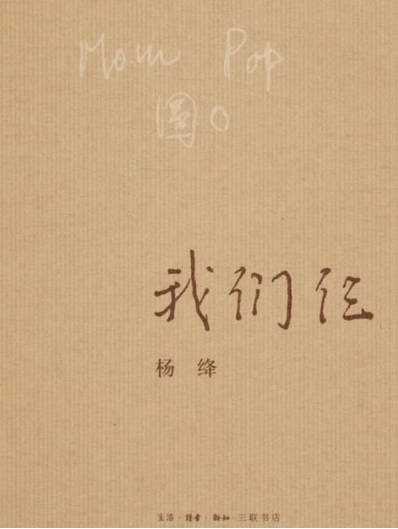 Mom Pop
圆O
我们仨
杨绛
生活·读书·新知三联书店